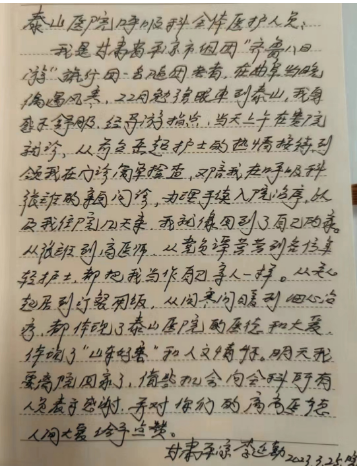 泰山医院呼吸科全体医护人员：
我是甘肃省平凉市组团"齐鲁八日
游"旅行团一名随团患者，在曲阜当晚
偶遇风寒，22日赶张眼车到泰山，我身
感不舒服，经导游指点，当天上午在贵院
就诊，从负责轻护士的热情接待到
领我在门诊简单检查，又陪我在呼吸科
张班的亲自问诊，办理手续入院治疗，以
及我住院几天来，我就像回到了自己的家。
从张班到高医师，从党负谭等到各位年
轻护士，都把我当作自己亲人一样。从
起居到订餐用饭，从问寒问暖到细心治
疗，都体现了泰山医院的医德和大爱，
体现了"山东好客"和人文情怀。明天我
要离院回家了，借此机会向全科所有
人员表示感谢，并对你们的高尚医德
人间大爱给予点赞。
甘肃平凉 李廷勤 2023.3.25.晚